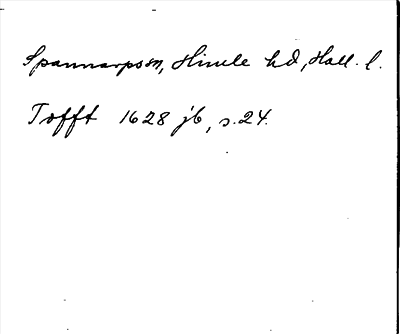 Spannarpssn, Himle hd, Hall. l.
Tofft 1628 jb, s. 24.